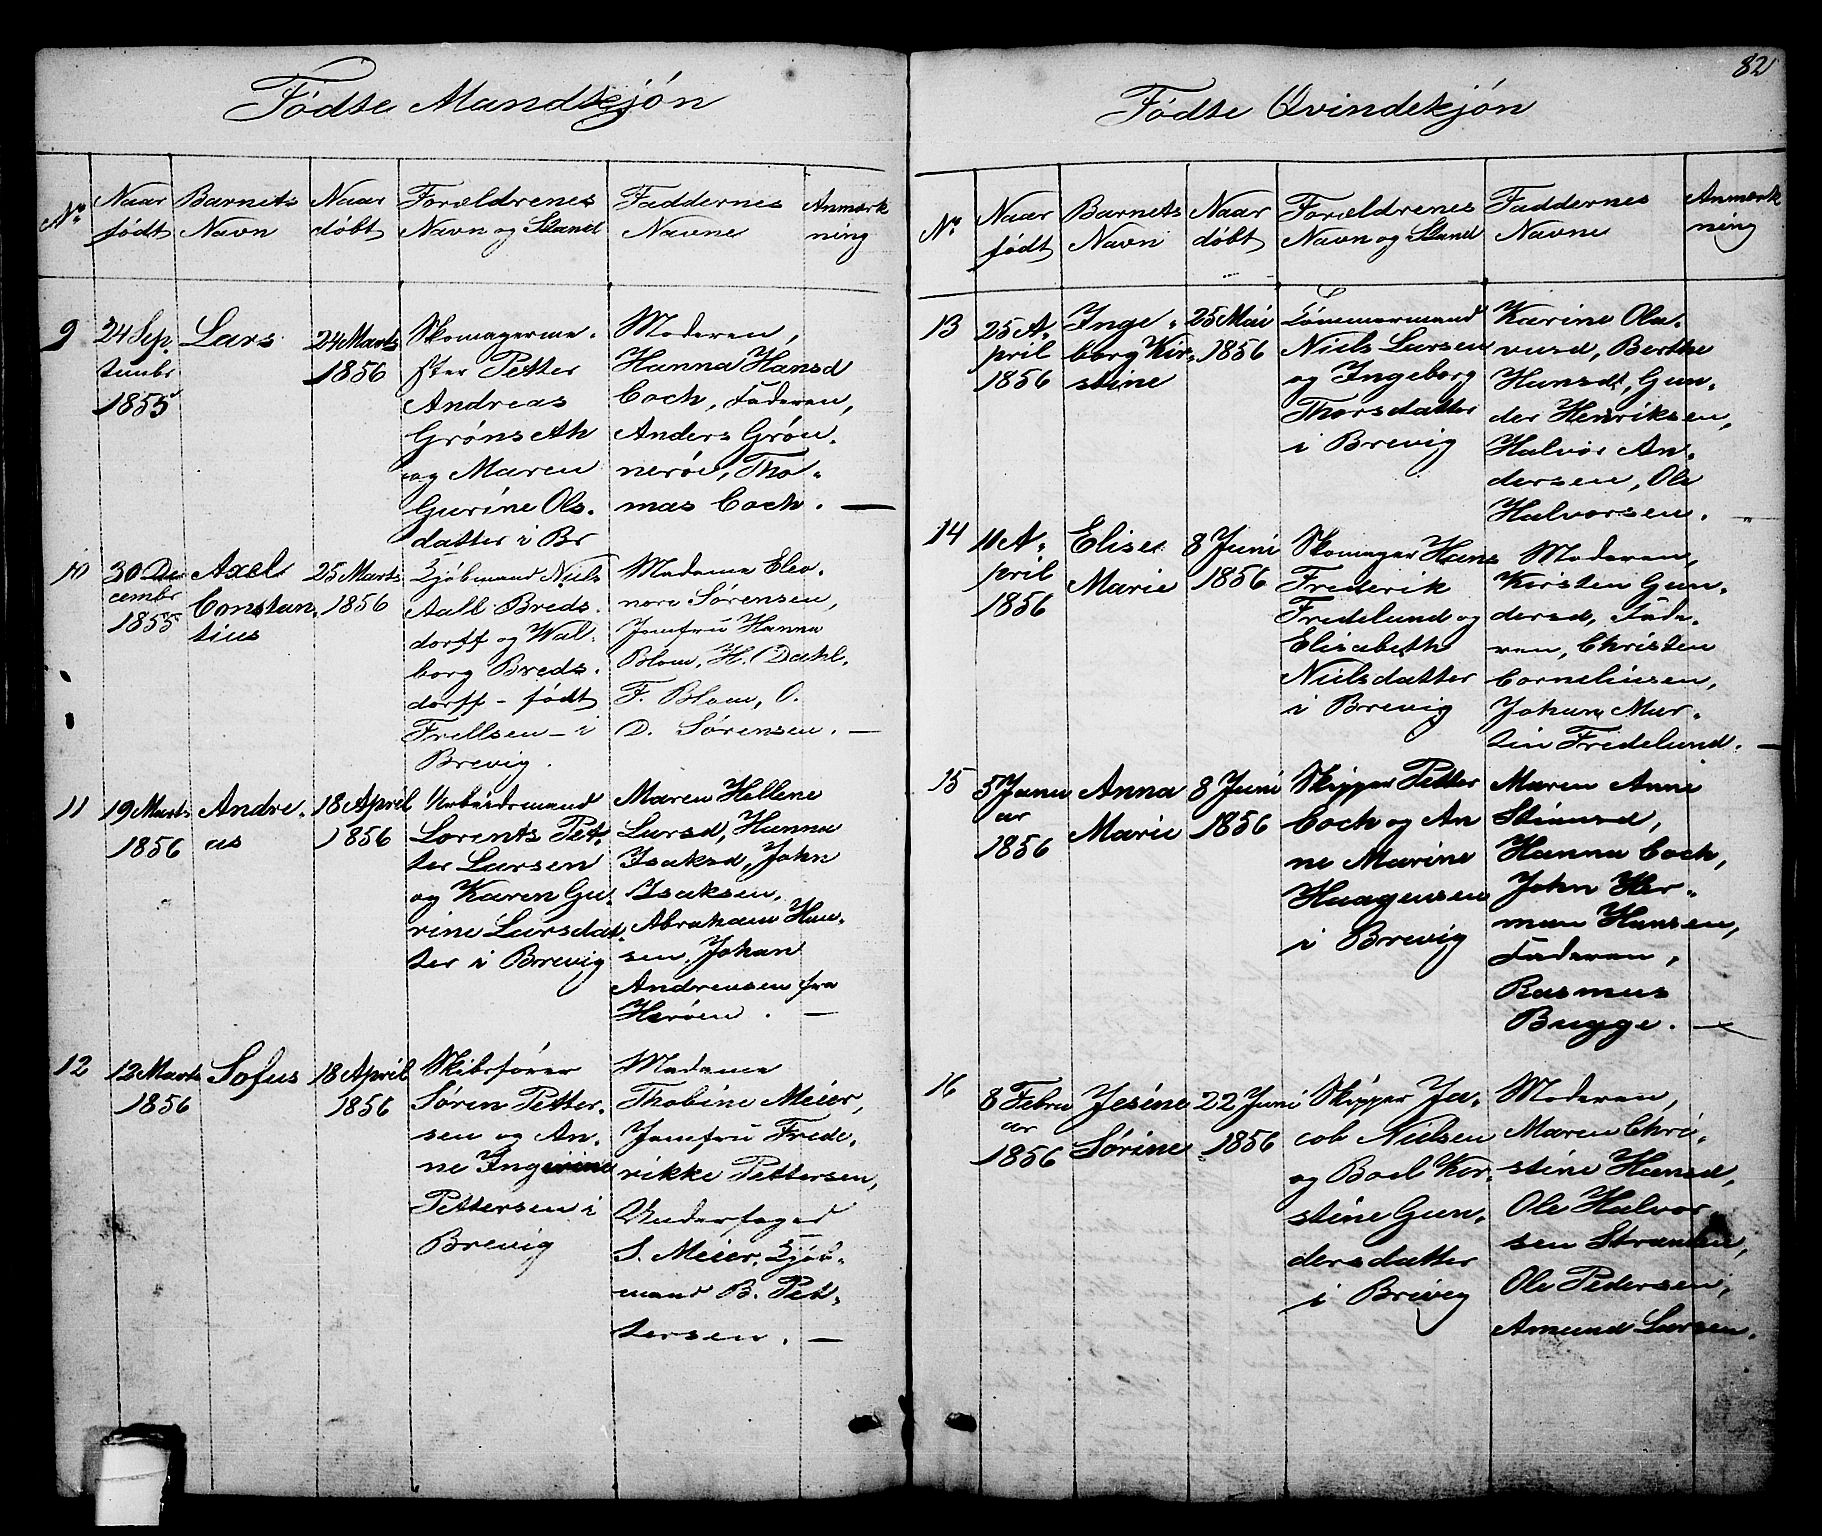 Fødte Mandkjøn
No
Naar
født
Barnets
Navn
Naar
døbt
Forældrenes
Navn og Stand
Faddernes
Navne
Anmærk
ning
9
24 Sep.
tembr
1855
Lars
24 Marts
1856
Skomagerme.
ster Petter
Andreas
Grønseth
og Maren
Gurine Ols.
datter i Br
Moderen,
Hanna Hansd
Coch, Faderen,
Anders Grøn.
nerøe, Tho.
mas Coch. —
10
30 De
cembr
1855
Axel
Constan.
tius
25 Marts
1856
Kjøbmand Niels
Aall Breds.
dorff og Wal.
borg Breds.
dorff - født
Frellsen - i
Brevig.
Madame Eleo.
nore Sørensen,
Jomfru Hanna
Blom, H. Dahl.
F. Blom, O.
D. Sørensen. —
11
19 Marts
1856
Andre.
as
18 April
1856
Arbeidsmand
Lorents Pet.
ter Larsen
og Karen Gu.
rine Larsdat.
ter i Brevig
Maren Hellene
Larsd, Hanna
Isaksd, John
Isaksen,
Abraham Han.
sen, Johan
Andreasen fra
Herøen. —
12
12 Marts
1856
Sofus
18 April
1856
Skibsfører
Søren Petter.
sen og An.
ne Ingerine
Pettersen i
Brevig
Madame
Thobine Meier,
Jomfru Frede.
rikke Pettersen,
Underfoged
S. Meier, Kjøb.
mand B. Pet.
tersen. —
82
Fødte Qvindekjøn
No
Naar
født
Barnets
Navn
Naar
døbt
Forældrenes
Navn og Stand
Faddernes
Navne
Anmærk
ning
13
25 A.
pril
1856
Inge.
borg Kir.
stine
25 Mai
1856
Tømmermand
Niels Larsen
og Ingeborg
Thorsdatter
i Brevig
Karine Ola.
vusd, Berthe
Hansdt, Gun.
der Henriksen,
Halvor An.
dersen, Ole
Halvorsen. —
14
11 A.
pril
1856
Elise
Marie
8 Juni
1856
Skomager Hans
Frederik
Fredelund og
Elisabeth
Nielsdatter
i Brevig
Moderen,
Kirsten Gun.
dersd, Fade.
ren, Christen
Corneliusen,
Johan Mar.
tin Fredelund. —
15
5 Janu
ar
1856
Anna
Marie
8 Juni
1856
Skipper Petter
Coch og An
ne Marine
Haagensen
i Brevig
Maren Anne
Simensd,
Hanna Coch,
John Her.
man Hansen,
Faderen,
Rasmus
Bugge. —
16
8 Febru
ar
1856
Jesine
Sørine
22 Juni
1856
Skipper Ja.
cob Nielsen
og Boel Kir.
stine Gun.
dersdatter
i Brevig
Moderen,
Maren Chri.
stine Hansd,
Ole Halvor
sen Stranden,
Ole Pedersen,
Amund Larsen.